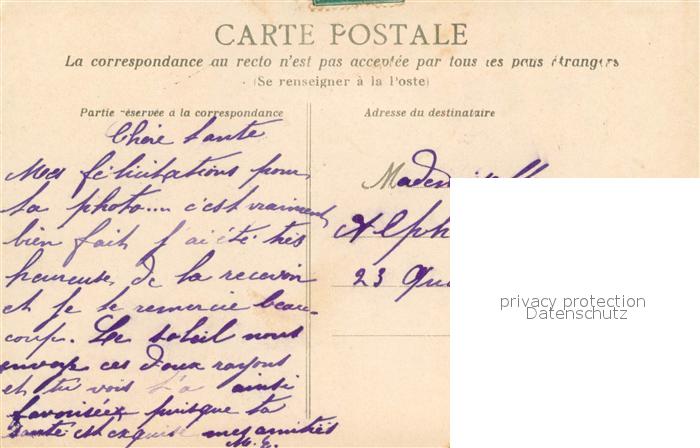 CARTE POSTALE
La correspondance au recto n'est pas acceptée par tous les pays étrangers
(Se renseigner à la Poste)
Partie réservée à la correspondance
Adresse du destinataire
Chère tante
Mes félicitations pour
ta photo.... c'est vraiment
bien fait j'ai été très
heureuse de la recevoir
et je te remercie beau-
coup. Le soleil nous
envoye ces doux rayons
et tu vois t'a ainsi
favorisée puisque ta
santé est exquise mes amitiés
M. E.
Mademoiselle
Alph
23 Qu
privacy protection
Datenschutz